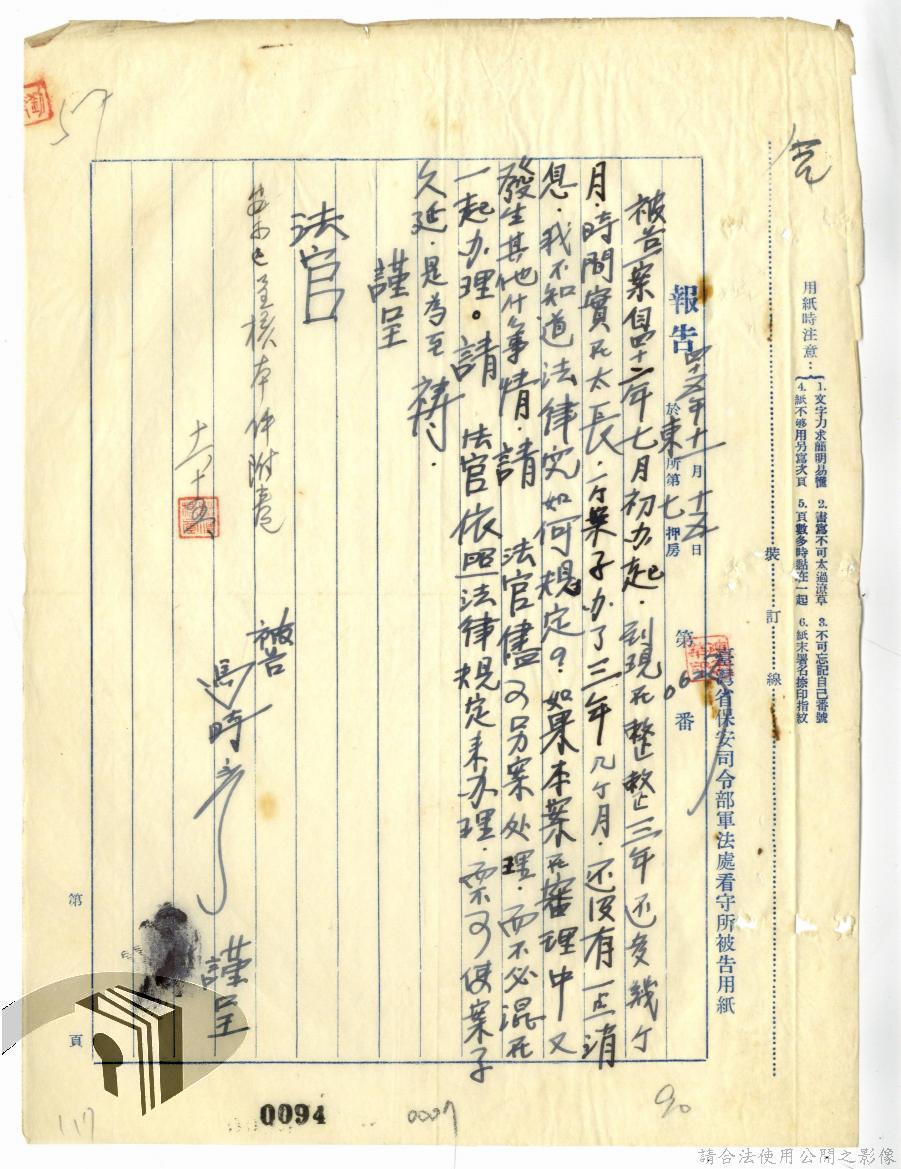 用紙時注意：
1. 文字力求簡明易懂 2. 書寫不可太過潦草 3. 不可忘記自己番號
4. 紙不够用另寫次頁 5. 頁數多時黏在一起 6. 紙末署名捺印指紋
裝訂線
臺灣省保安司令部軍法處看守所被告用紙
報告 四十五年十一月十五日 於東所第七押房 第 番
被告案自四十二年七月初办起．到現在整整三年还多幾个
月．時間實在太長．一个案子办了三年几个月．还没有一点消
息．我不知道法律究如何規定？如果本案在審理中又
發生其他什么事情．請 法官儘可另案处理．而不必混在
一起办理。請 法官依照法律規定来办理．而不可使案子
久延．是為至禱．
謹呈
法官
本件附卷
被告 馬時彥 謹呈
第 頁
57
0094
0007
90
117
請合法使用公開之影像